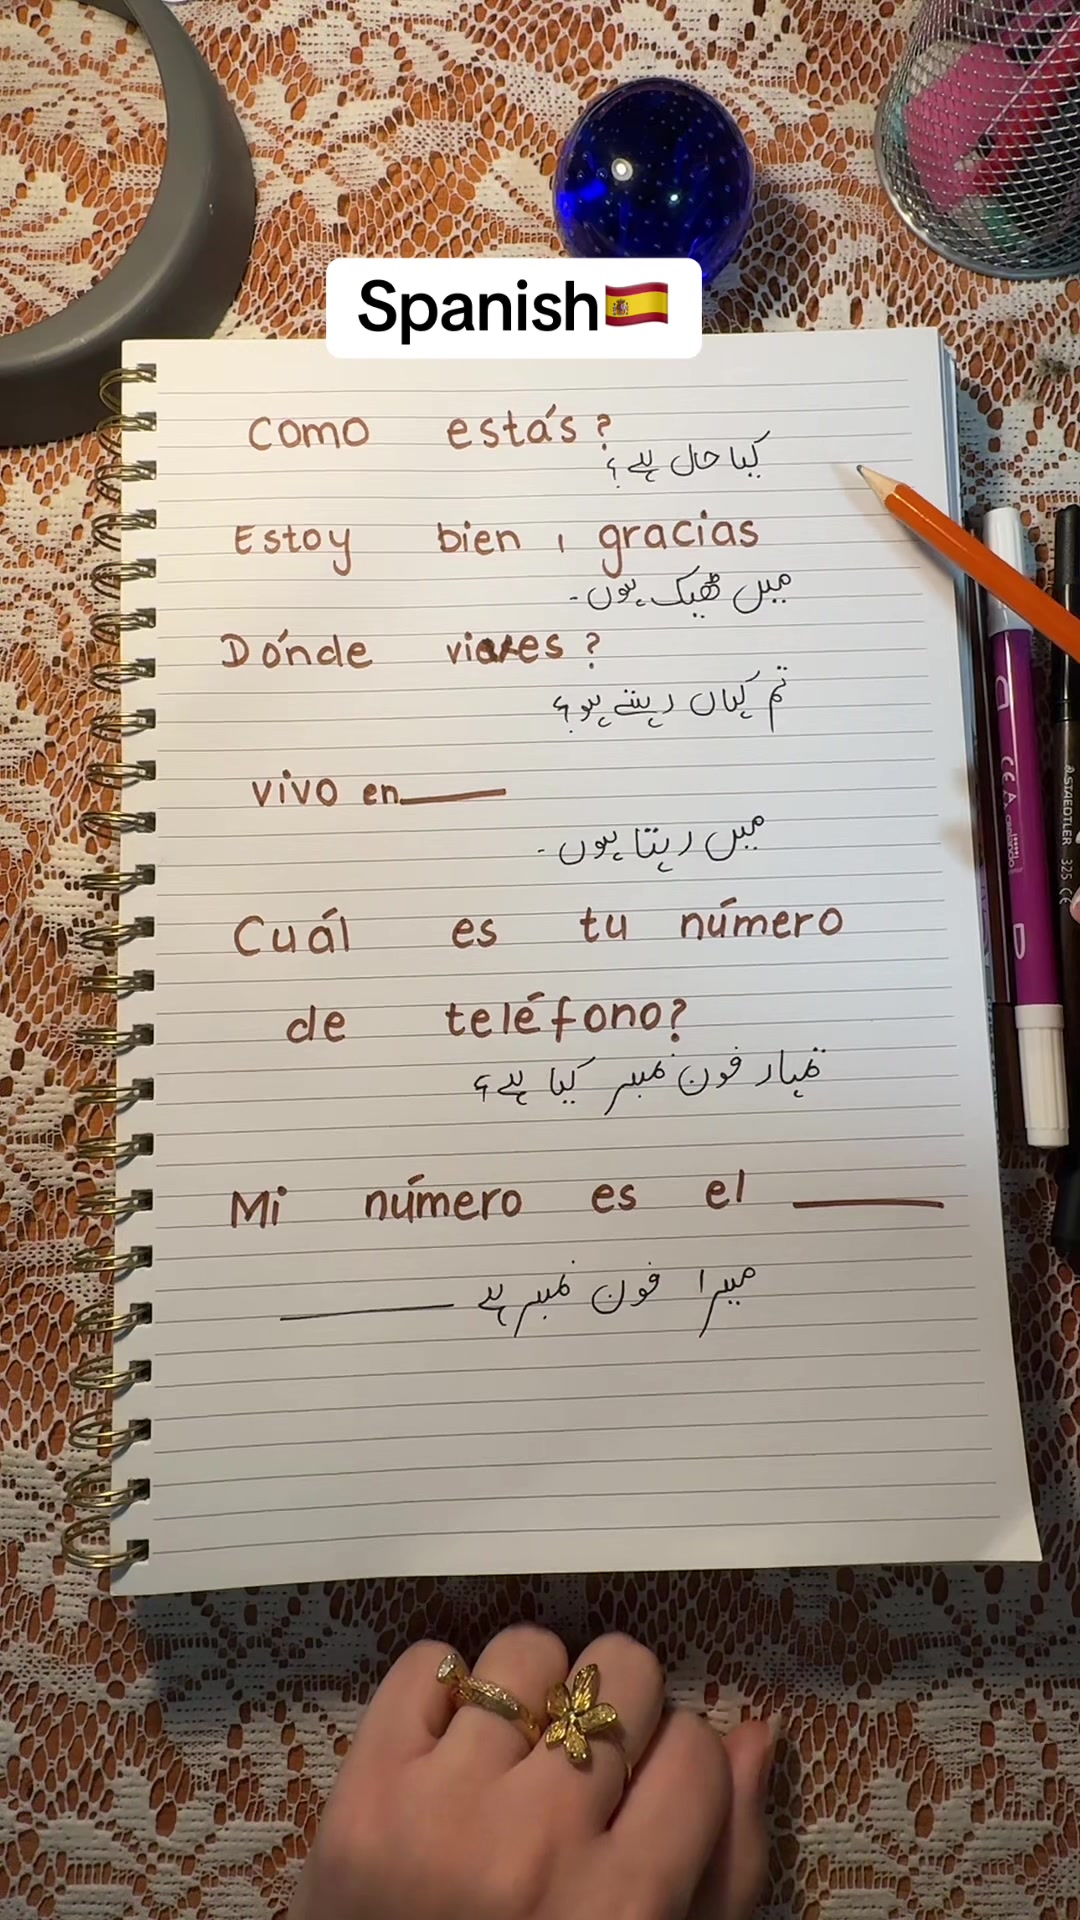 Spanish🇪🇸
Como estás?
کیا حال ہے؟
Estoy bien, gracias
میں ٹھیک ہوں۔
Dónde vives?
تم کہاں رہتے ہو؟
vivo en____
میں رہتا ہوں۔
Cuál es tu número
de teléfono?
تمہار فون نمبر کیا ہے؟
Mi número es el ____
میرا فون نمبر ہے ____
STAEDTLER 325 CE